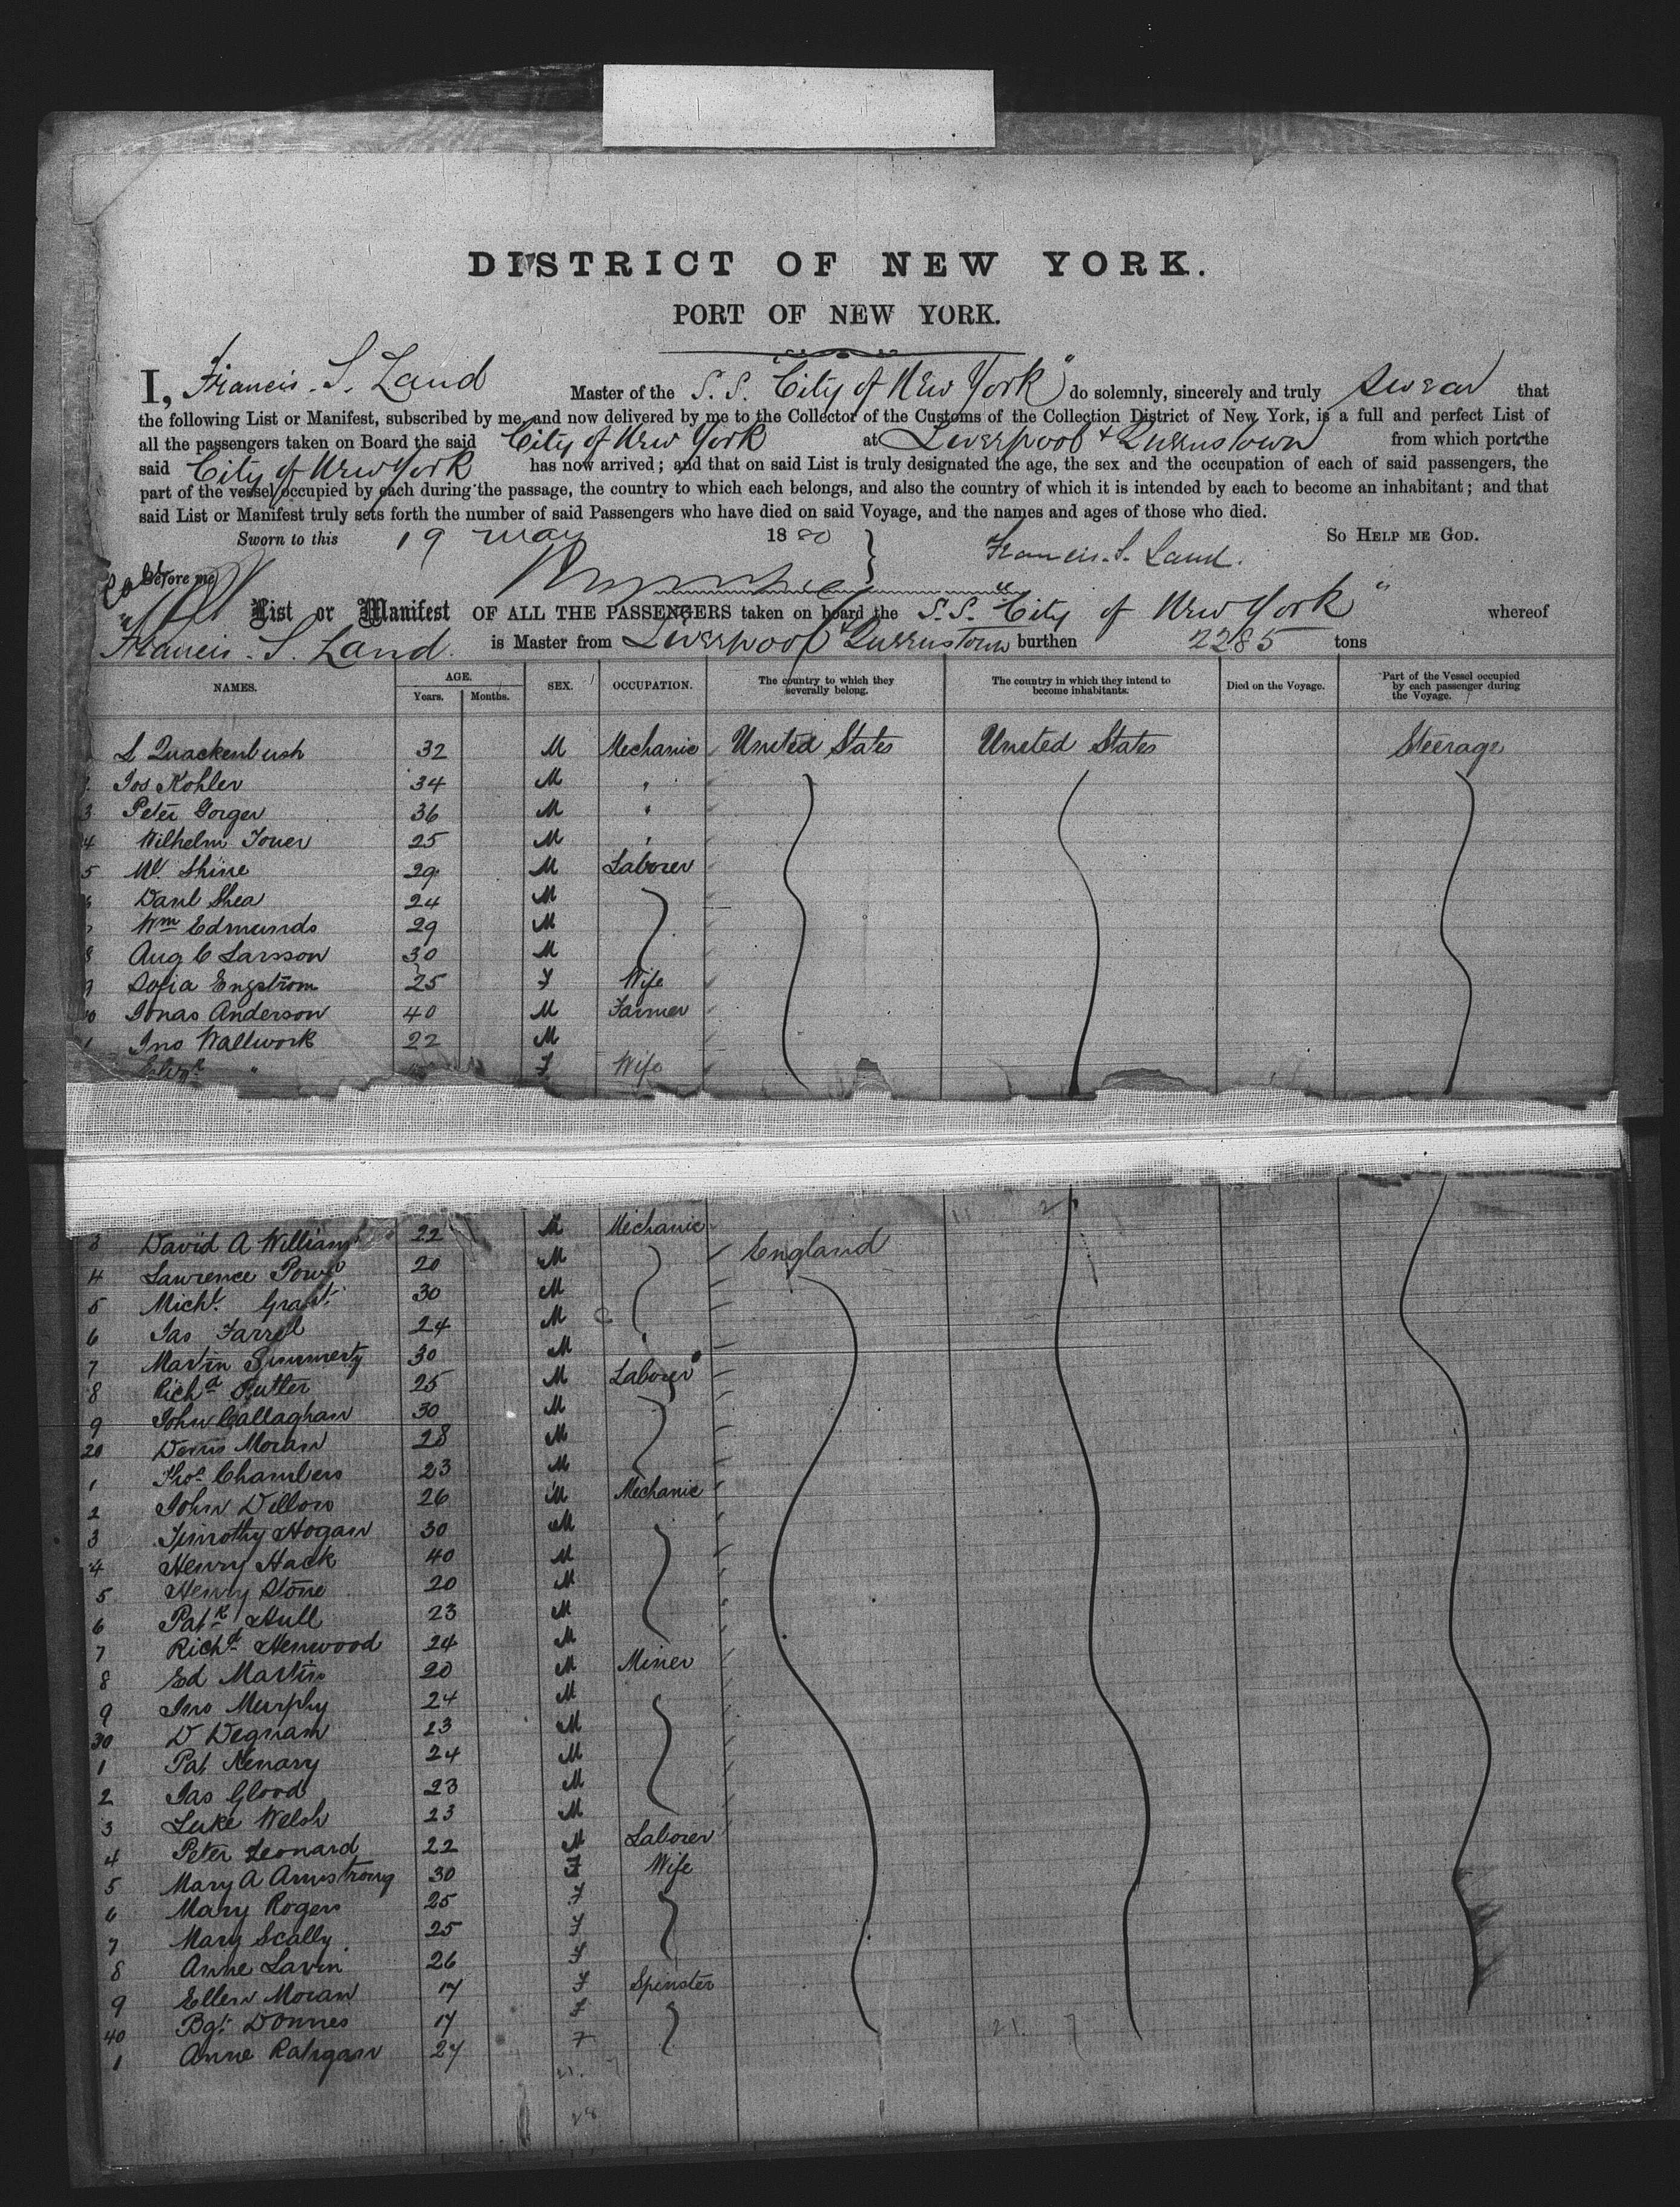 DISTRICT OF NEW YORK.
PORT OF NEW YORK.
I, Francis. S. Land Master of the S. S. "City of New York" do solemnly, sincerely and truly swear that
the following List or Manifest, subscribed by me, and now delivered by me to the Collector of the Customs of the Collection District of New York, is a full and perfect List of
all the passengers taken on Board the said City of New York at Liverpool & Queenstown from which port the
said City of New York has now arrived; and that on said List is truly designated the age, the sex and the occupation of each of said passengers, the
part of the vessel occupied by each during the passage, the country to which each belongs, and also the country of which it is intended by each to become an inhabitant; and that
said List or Manifest truly sets forth the number of said Passengers who have died on said Voyage, and the names and ages of those who died.
Sworn to this 19 May 1880 So HELP ME GOD.
Francis. S. Land.
Before me
List or Manifest OF ALL THE PASSENGERS taken on board the S.S. "City of New York" whereof
Francis. S. Land. is Master from Liverpool & Queenstown burthen 2285 tons
NAMES. AGE. Years. Months. SEX. OCCUPATION. The country to which they severally belong. The country in which they intend to become inhabitants. Died on the Voyage. Part of the Vessel occupied by each passenger during the Voyage.
L Quackenbush 32 M Mechanic United States United States Steerage
2 Jos Kohler 34 M "
3 Peter Gorger 36 M "
4 Wilhelm Toner 25 M "
5 W. Shine 29 M Laborer
6 Danl Shea 24 M
7 Wm Edmunds 29 M
8 Aug C Larsson 30 M
9 Sofia Engstrom 25 F Wife
10 Jonas Anderson 40 M Farmer
1 Jno Wallwork 22 M
Elizth " F Wife
3 David A Williams 22 M Mechanic
4 Lawrence Power 20 M England
5 Michl. Grant 30 M
6 Jas Farrel 24 M
7 Martin 30 M "
8 Richd Butler 25 M Laborer
9 John Callaghan 30 M
20 Denis Moran 28 M
1 Thos Chambers 23 M
2 John Dillon 26 M Mechanic
3 Timothy Hogan 30 M
4 Henry Hack 40 M
5 Henry Stone 20 M
6 Patk Hull 23 M
7 Richd Henwood 24 M
8 Ed Martin 20 M Miner
9 Jno Murphy 24 M
30 D Degnam 23 M
1 Pat Kenary 24 M
2 Jas Glood 23 M
3 Luke Welsh 23 M
4 Peter Leonard 22 M Laborer
5 Mary A Armstrong 30 F Wife
6 Mary Rogers 25 F
7 Mary Scally 25 F
8 Anne Lavin 26 F
9 Ellen Moran 17 F Spinster
40 Bgt. Donnes 17 F
1 Anne Rahigan 27 F